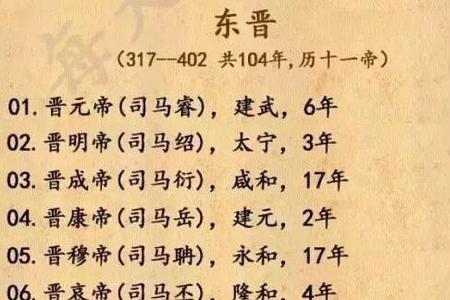 东晋
(317--402 共104年,历十一帝)
01.晋元帝(司马睿)，建武，6年
02.晋明帝(司马绍)，太宁，3年
03.晋成帝(司马衍)，咸和，17年
04.晋康帝(司马岳)，建元，2年
05.晋穆帝(司马聃)，永和，17年
06.晋哀帝(司马丕)，隆和，4年